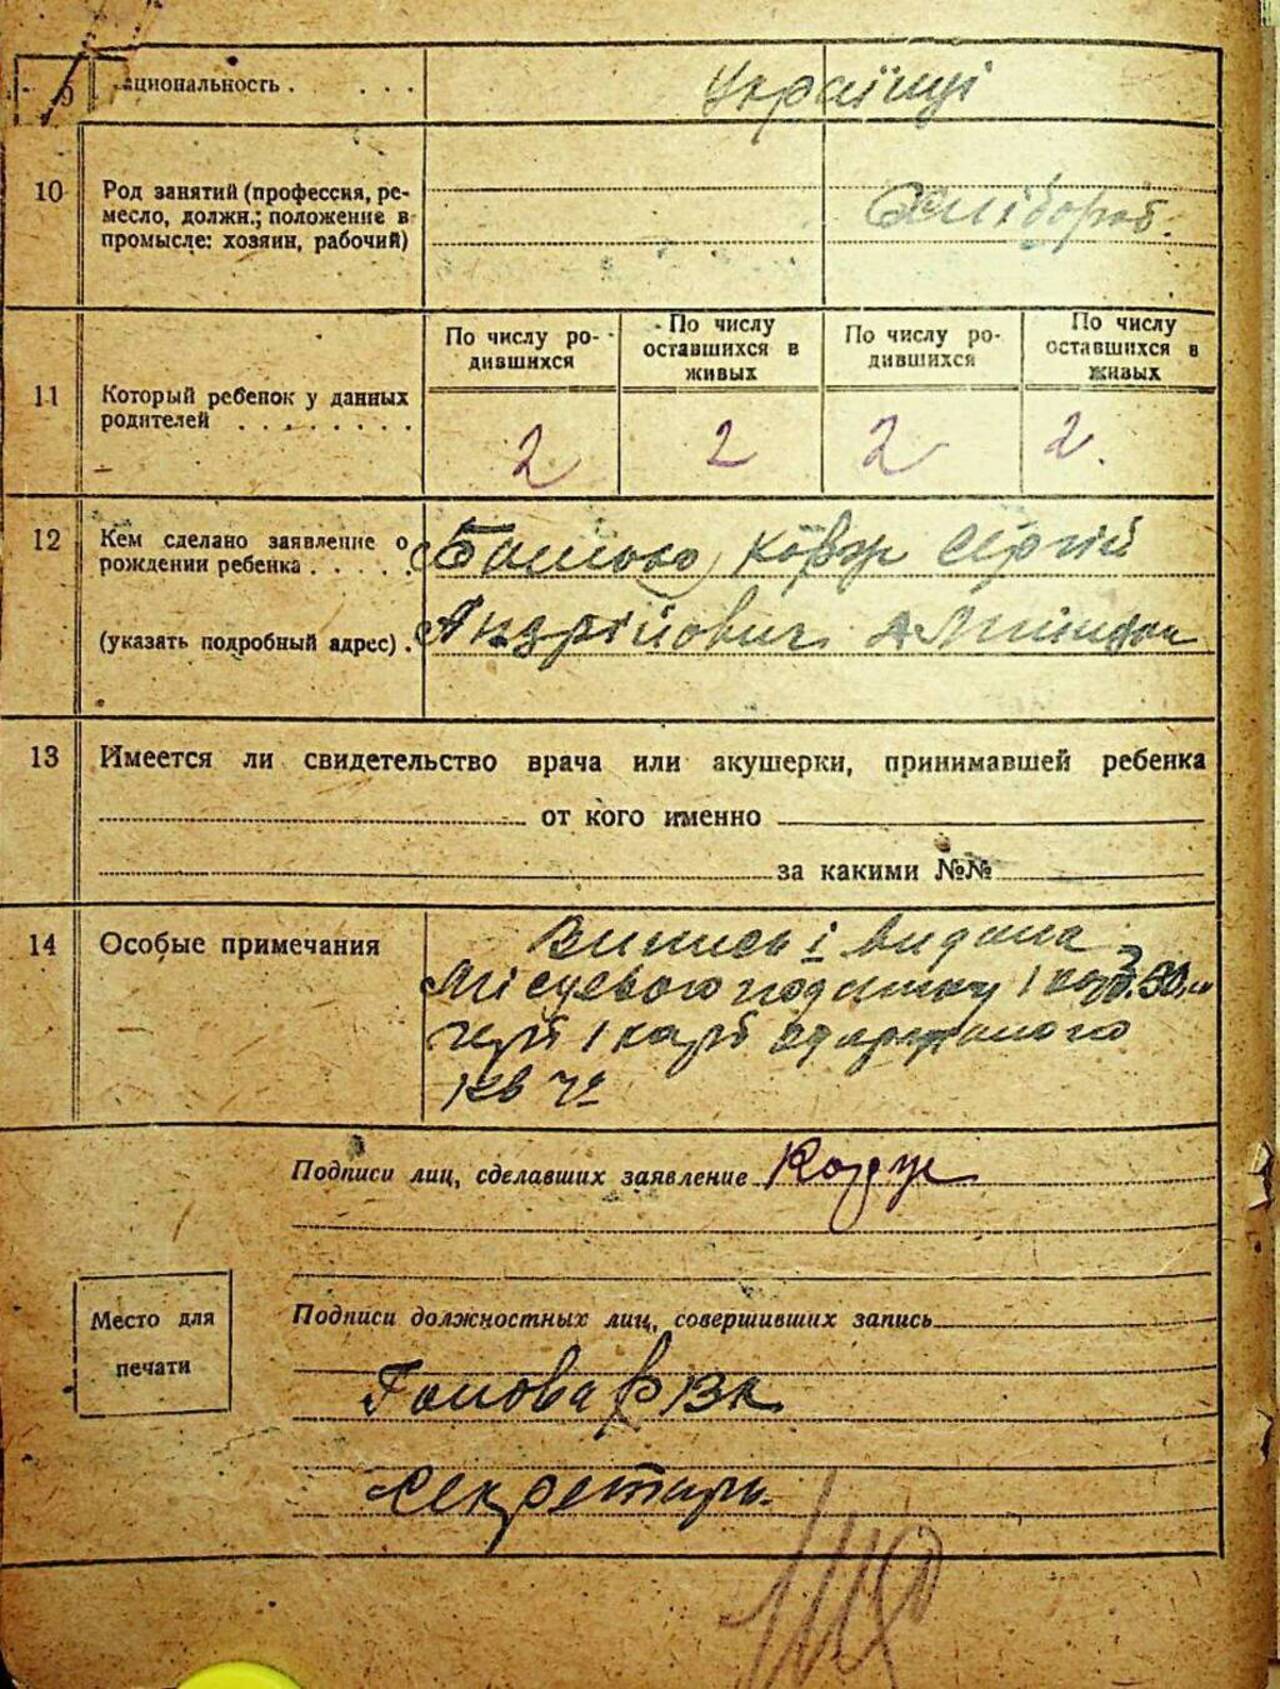 9 ациональность . . . . Українці
10 Род занятий (профессия, ре-
месло, должн.; положение в
промысле: хозяин, рабочий)
Хлібороб.
По числу ро-
дившихся
По числу
оставшихся в
живых
По числу ро-
дившихся
По числу
оставшихся в
живых
11 Который ребенок у данных
родителей . . . . . . . .
2 2 2 2.
12 Кем сделано заявление о
рождении ребенка . . . . .
(указать подробный адрес) .
Батько Ковж Сергій
Андрійович
13 Имеется ли свидетельство врача или акушерки, принимавшей ребенка
от кого именно
за какими №№
14 Особые примечания
Випись і видана
Місцевого податку 1 карб. 30
герб 1 карб
кв №
Подписи лиц, сделавших заявление Ковж
Место для
печати
Подписи должностных лиц, совершивших запись
Голова
Секретарь